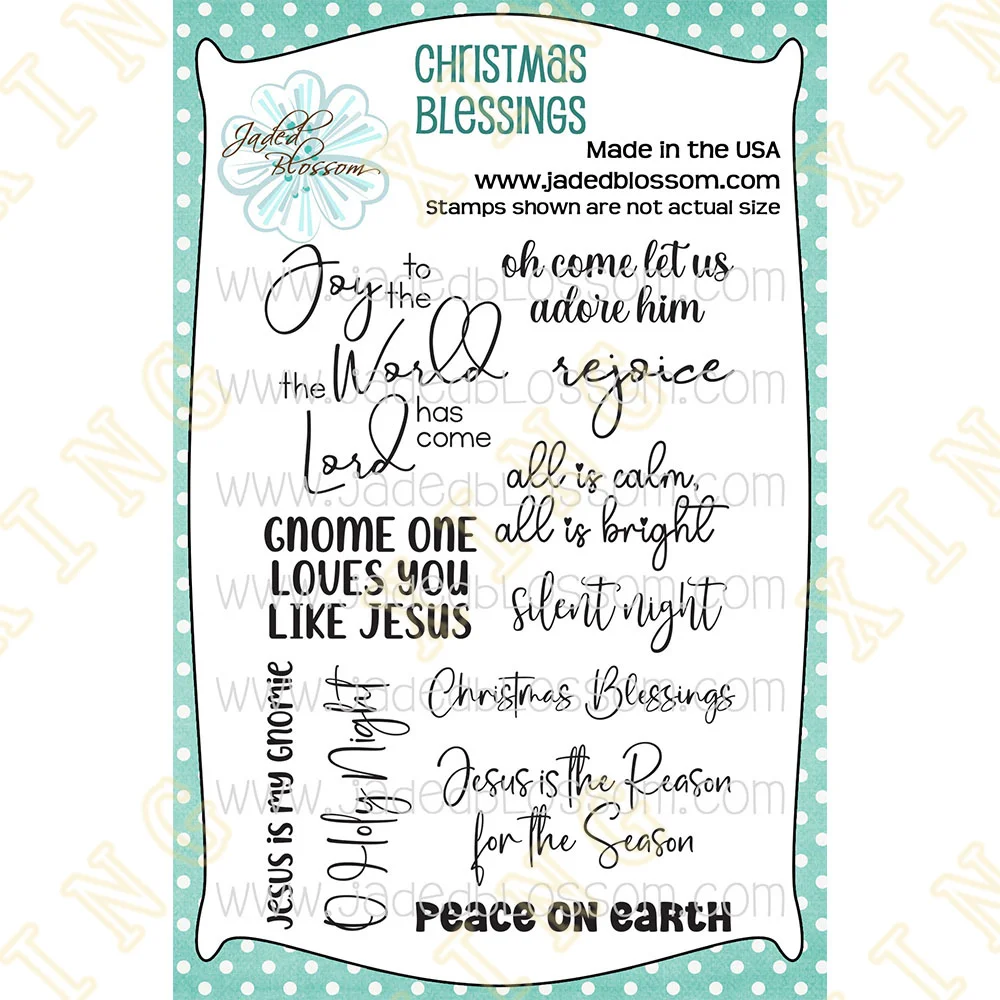 Christmas
Blessings
Jaded
Blossom
Made in the USA
www.jadedblossom.com
Stamps shown are not actual size
Joy to
the
the World
Lord has
come
oh come let us
adore him
rejoice
all is calm,
all is bright
GNOME ONE
LOVES YOU
LIKE JESUS
silent night
JESUS IS MY GNOMIE
O Holy Night
Christmas Blessings
Jesus is the Reason
for the Season
Peace on earth
www.jadedblossom.com
www.jadedblossom.com
www.jadedblossom.com
www.jadedblossom.com
www.jadedblossom.com
www.jadedblossom.com
www.jadedblossom.com
XINGXING